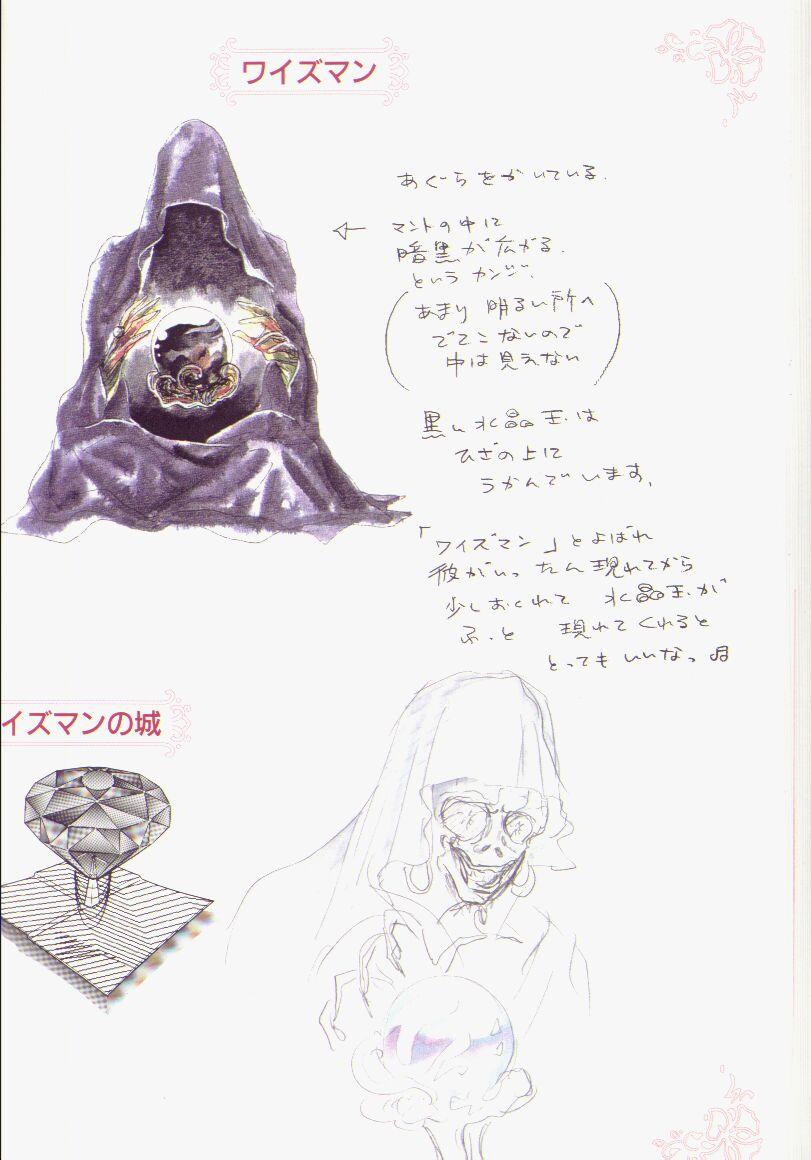 ワイズマン
あぐらをかいている.
← マントの中に
暗黒が広がる.
という カンジ.
(あまり 明るい所へ
でてこないので
中は見えない)
黒い水晶玉は
ひざの上に
うかんでいます.
「ワイズマン」とよばれ
彼がいったん現れてから
少しおくれて 水晶玉が
ふっと 現れてくれると
とってもいいなっ♫
イズマンの城